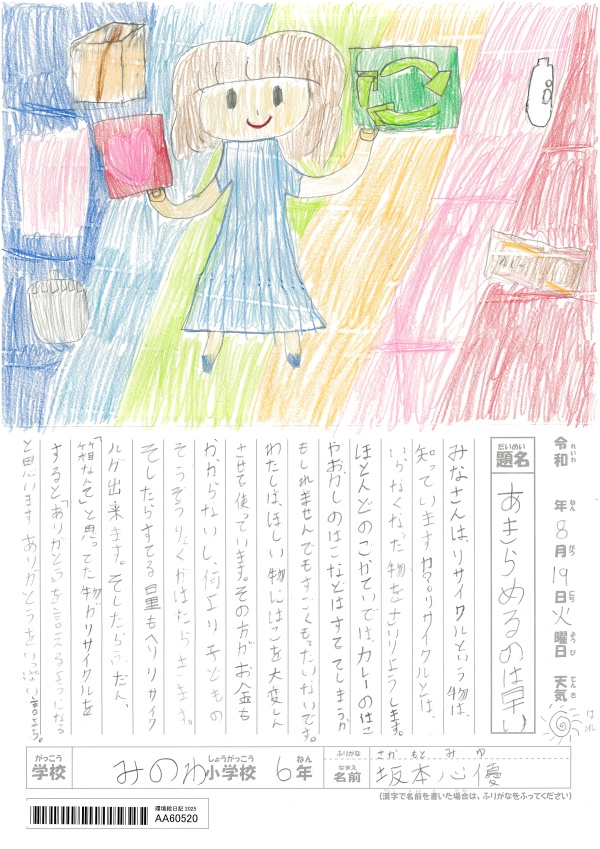 令和 年 8月 19日 火曜日 天気 はれ
れいわ ねん がつ にち ようび てんき
だいめい
題名 あきらめるのは早い
みなさんは、リサイクルという物は、
知っていますか。リサイクルとは、
いらなくなった物をさいりようします。
ほとんどのごかていでは、カレーのはこ
やおかしのはこなどはすててしまうか
もしれませんでもすごくもったいないです。
わたしは、ほしい物にはこを大変しん
させて使っています。その方がお金も
かからないし、何より子どもの
そうぞうりょくがはたらきます。
そしたらすてる量もへりリサイク
ルが出来ます。そしたらふだん、
「箱なんて」と思ってた物がリサイクルを
すると「ありがとう」を言えるようになる
と思いますありがとうをいっぱい言おう。
がっこう しょうがっこう ねん ふりがな さか もと み ゆ
学校 みのわ小学校 6年 なまえ 名前 坂本心優
(漢字で名前を書いた場合は、ふりがなをふってください)
環境絵日記 2025
AA60520